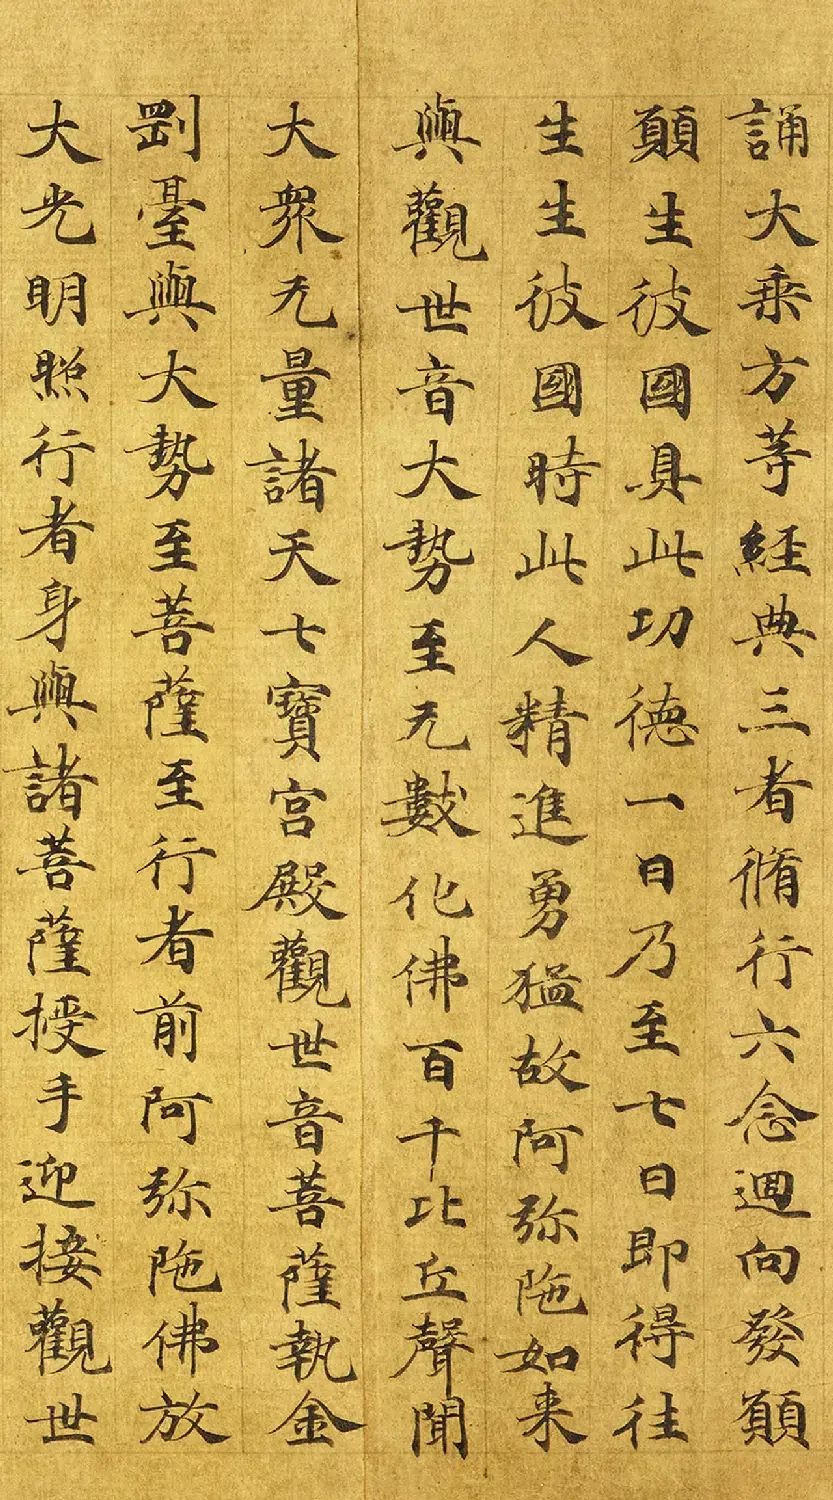 誦大乗方等經典三者脩行六念迴向發願
願生彼國具此功徳一日乃至七日即得往
生生彼國時此人精進勇猛故阿弥陁如来
與觀世音大勢至无數化佛百千比丘聲聞
大衆无量諸天七寶宮殿觀世音菩薩執金
剛臺與大勢至菩薩至行者前阿弥陁佛放
大光明照行者身與諸菩薩授手迎接觀世